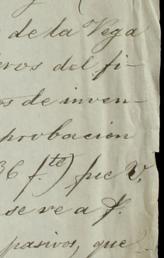 de la Vega
eros del fi-
os de inven-
probacion
36 f.te) que V.
se ve a
pasivos, que